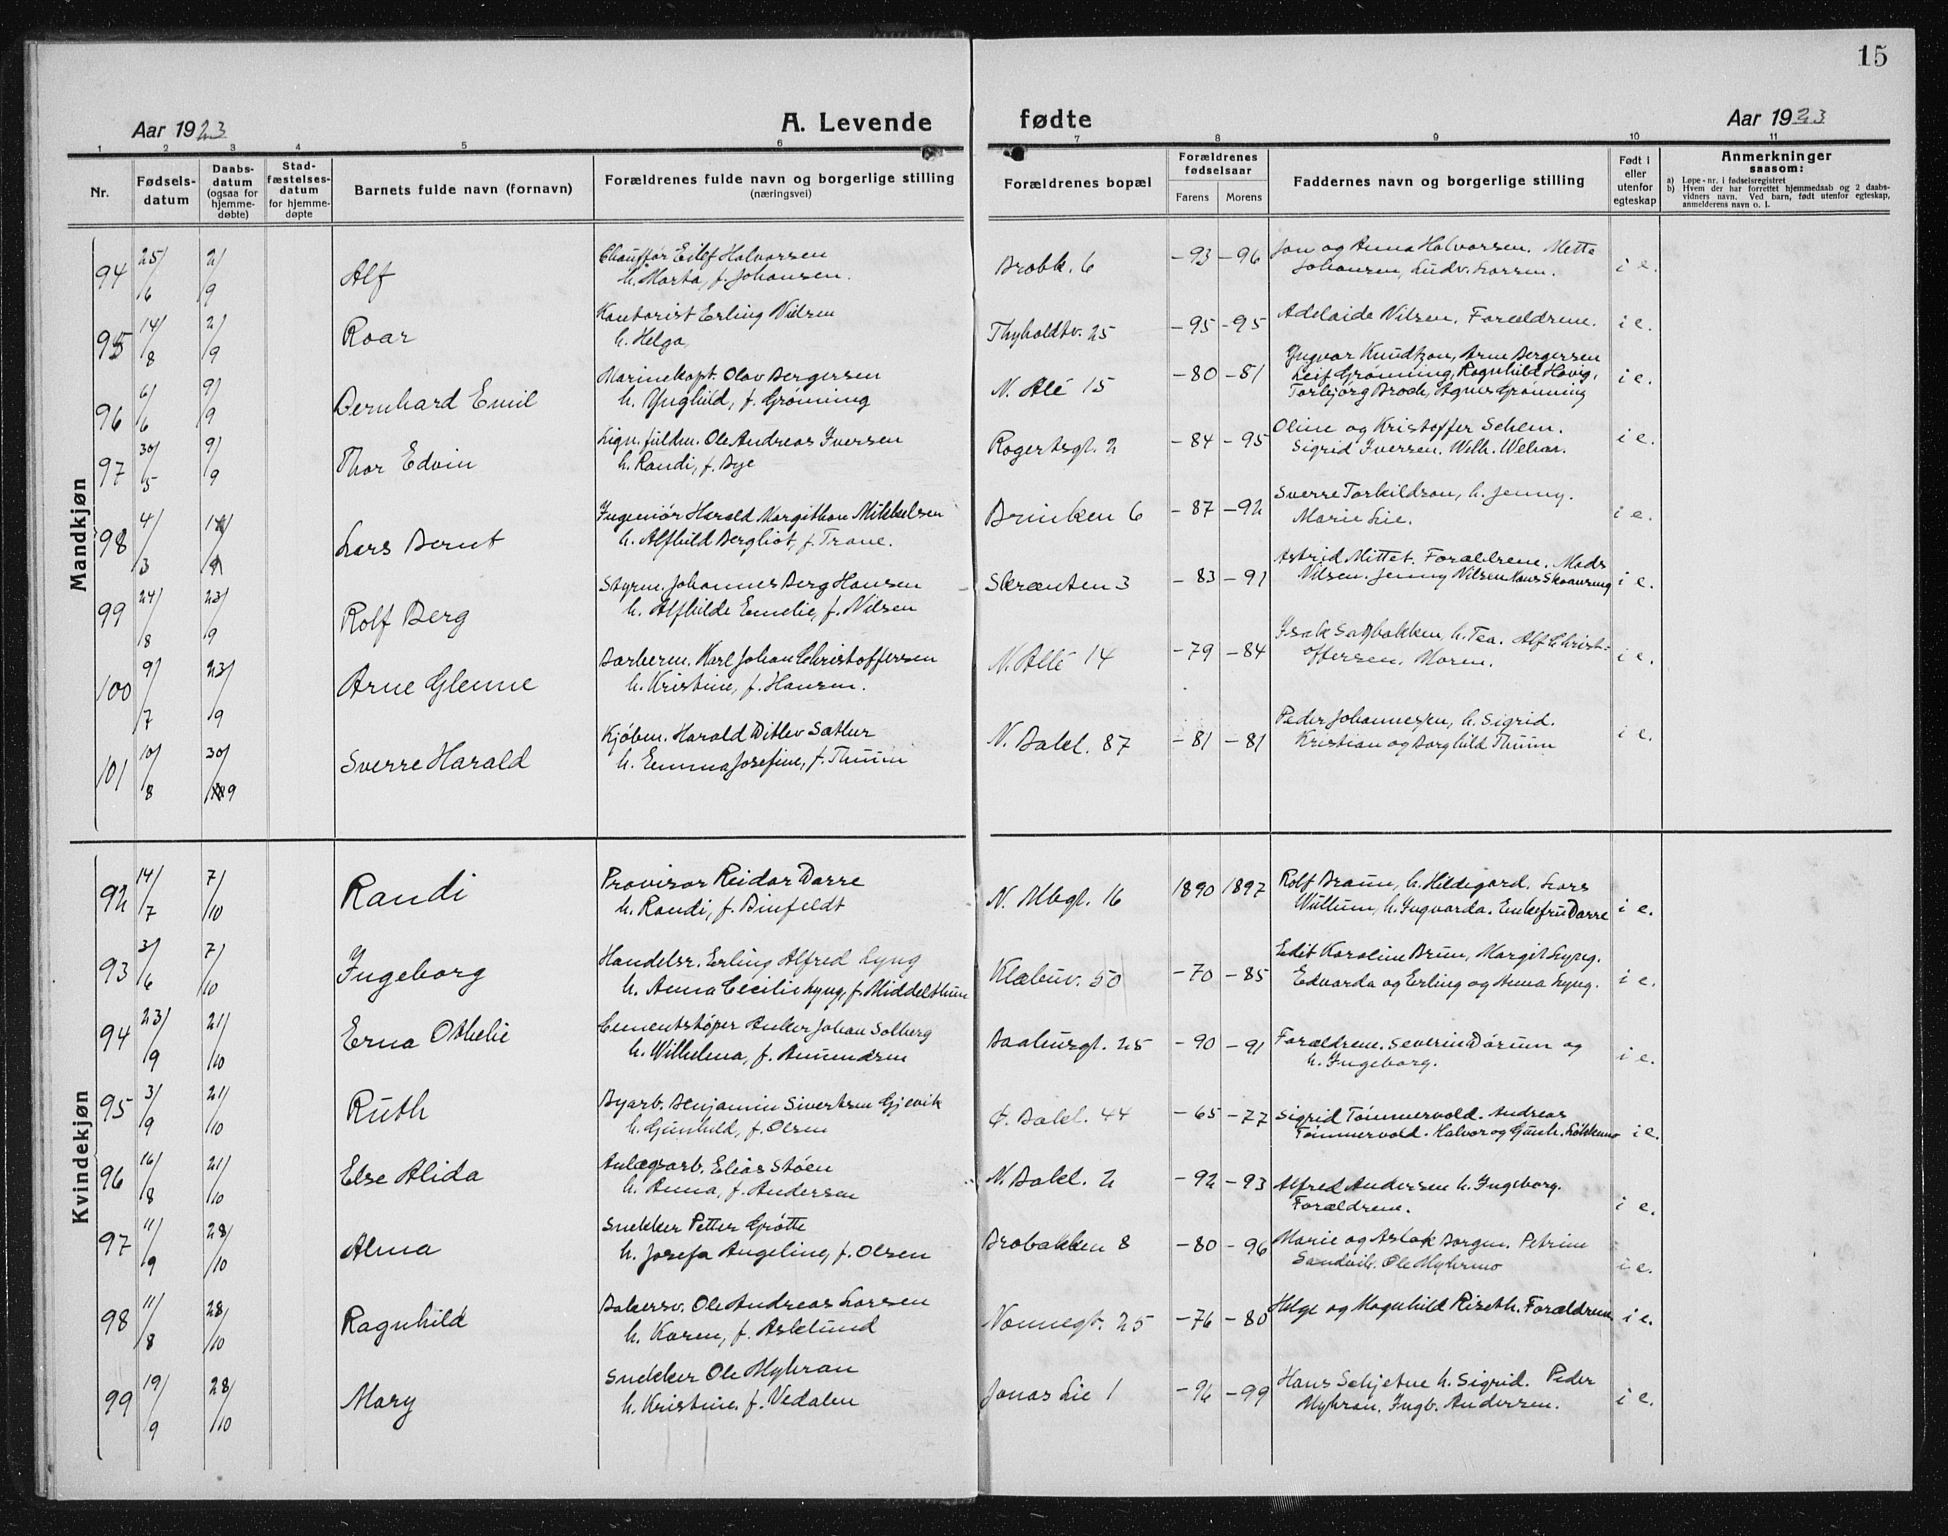 15
Aar 1923
A. Levende
fødte
Aar 1923
1 2 3 4 5 6 7 8 9 10 11
Nr.
Fødsels-
datum
Daabs-
datum
(ogsaa for
hjemme-
døbte)
Stad-
fæstelses-
datum
for hjemme-
døpte
Barnets fulde navn (fornavn)
Forældrenes fulde navn og borgerlige stilling
(næringsvei)
Forældrenes bopæl
Forældrenes
fødselsaar
Farens Morens
Faddernes navn og borgerlige stilling
Født i
eller
utenfor
egteskap
Anmerkninger
saasom:
a) Løpe-nr. i fødselsregistret
b) Hvem der har forrettet hjemmedaab og 2 daabs-
vidners navn. Ved barn, født utenfor egteskap,
anmelderens navn o. l.
Mandkjøn
94 25/6 2/9 Alf
Chauffør Eilef Halvorsen
h. Marta, f. Johansen.
Brobk. 6 -93 -96
Jon og Anna Halvorsen. Mette
Johansen, Ludv. Larsen.
i e.
95 14/8 2/9 Roar
Kontorist Erling Nilsen
h. Helga,
Thyholdtv. 25 -95 -95
Adelaide Nilsen. Forældrene.
i e.
96 6/6 9/9 Bernhard Emil
Marinekapt. Olav Bergersen
h. Ynghild, f. Grønning
N. Alé 15 -80 -81
Yngvar Knudtzon, Arne Bergersen
Leif Grønning, Ragnhild Hovig,
Torbjørg Broch, Agnes Grønning
i e.
97 30/5 9/9 Thor Edvin
Lign. fuldm. Ole Andreas Iversen
h. Randi, f. Bye
Rogertsgt. 2 -84 -95
Oline og Kristoffer Schem.
Sigrid Iversen. Wilh.
i e.
98 4/3 Lars Bernt
Ingeniør Harald Margithon Mikkelsen
h. Alfhild Bergliot, f. Trane.
Brinken 6 -87 -92
Sverre Torkildsen, h. Jenny.
Marie Lie.
i e.
99 24/8 23/9 Rolf Berg
Styrm. Johannes Berg Hansen
h. Alfhilde Emelie, f. Nilsen
Skrænten 3 -83 -91
Astrid Mittet. Forældrene. Mads
Nilsen. Jenny Nilsen Hans
i e.
100 9/7 23/9 Arne Glenne
Barberm. Karl Johan Christoffersen
h. Kristine, f. Hansen.
N. Allé 14 -79 -84
Isak Sagbakken, h. Tea. Alf Christ-
offersen. Moren.
i e.
101 10/8 30/9 Sverre Harald
Kjøbm. Harald Ditlev Sather
h. Emma Josefine, f. Thuim
N. Bakl. 87 -81 -81
Peder Johannessen, h. Sigrid.
Kristian og Borghild Thuim
i e.
Kvindekjøn
92 14/7 7/10 Randi
Provisor Reidar Darre
h. Randi, f. Binfeldt
N. Mbgt. 16 1890 1897
Rolf Braun, h. Hildegard. Lars
Wullum, h. Ingvarda. Enkefru Darre
i e.
93 3/6 7/10 Ingeborg
Handelsr. Erling Alfred Lyng
h. Anna Cecilie Lyng, f. Middelthun
Klæbuv. 50 -70 -85
Edit Karoline Brun, Margit Lyng.
Edvarda og Erling og Anna Lyng.
i e.
94 23/9 21/10 Erna Othelie
Cementstøper Anker Johan Solberg
h. Wilhelma, f. Amundsen
Aalburgt. 25 -90 -91
Forældrene. Severin Dørum og
h. Ingeborg.
i e.
95 3/9 21/10 Ruth
Byarb. Benjamin Sivertsen Gjevik
h. Gunhild, f. Olsen
Ø. Bakl. 44 -65 -77
Sigrid Tømmervold. Andreas
Tømmervold. Halvor og Gunh. Løkkemo
i e.
96 16/8 21/10 Else Alida
Anlægsarb. Elias Støen
h. Anna, f. Andersen
N. Bakl. 2 -92 -93
Alfred Andersen h. Ingeborg.
Forældrene.
i e.
97 11/9 28/10 Alma
Snekker Petter Grøtte
h. Josefa Angeline, f. Olsen
Brobakken 8 -80 -96
Marie og Aslak Borgen. Petrine
Sandvik. Ole Myhrmo
i e.
98 11/8 28/10 Ragnhild
Bakersv. Ole Andreas Larsen
h. Karen, f. Asklund
Nonnegt. 25 -76 -80
Helge og Magnhild Riseth. Forældrene
i e.
99 19/9 28/10 Mary
Snekker Ole Myhran
h. Kristine, f. Vedalen
Jonas Lie 1 -96 -99
Hans Schjetne h. Sigrid. Peder
Myhran. Ingb. Andersen.
i e.